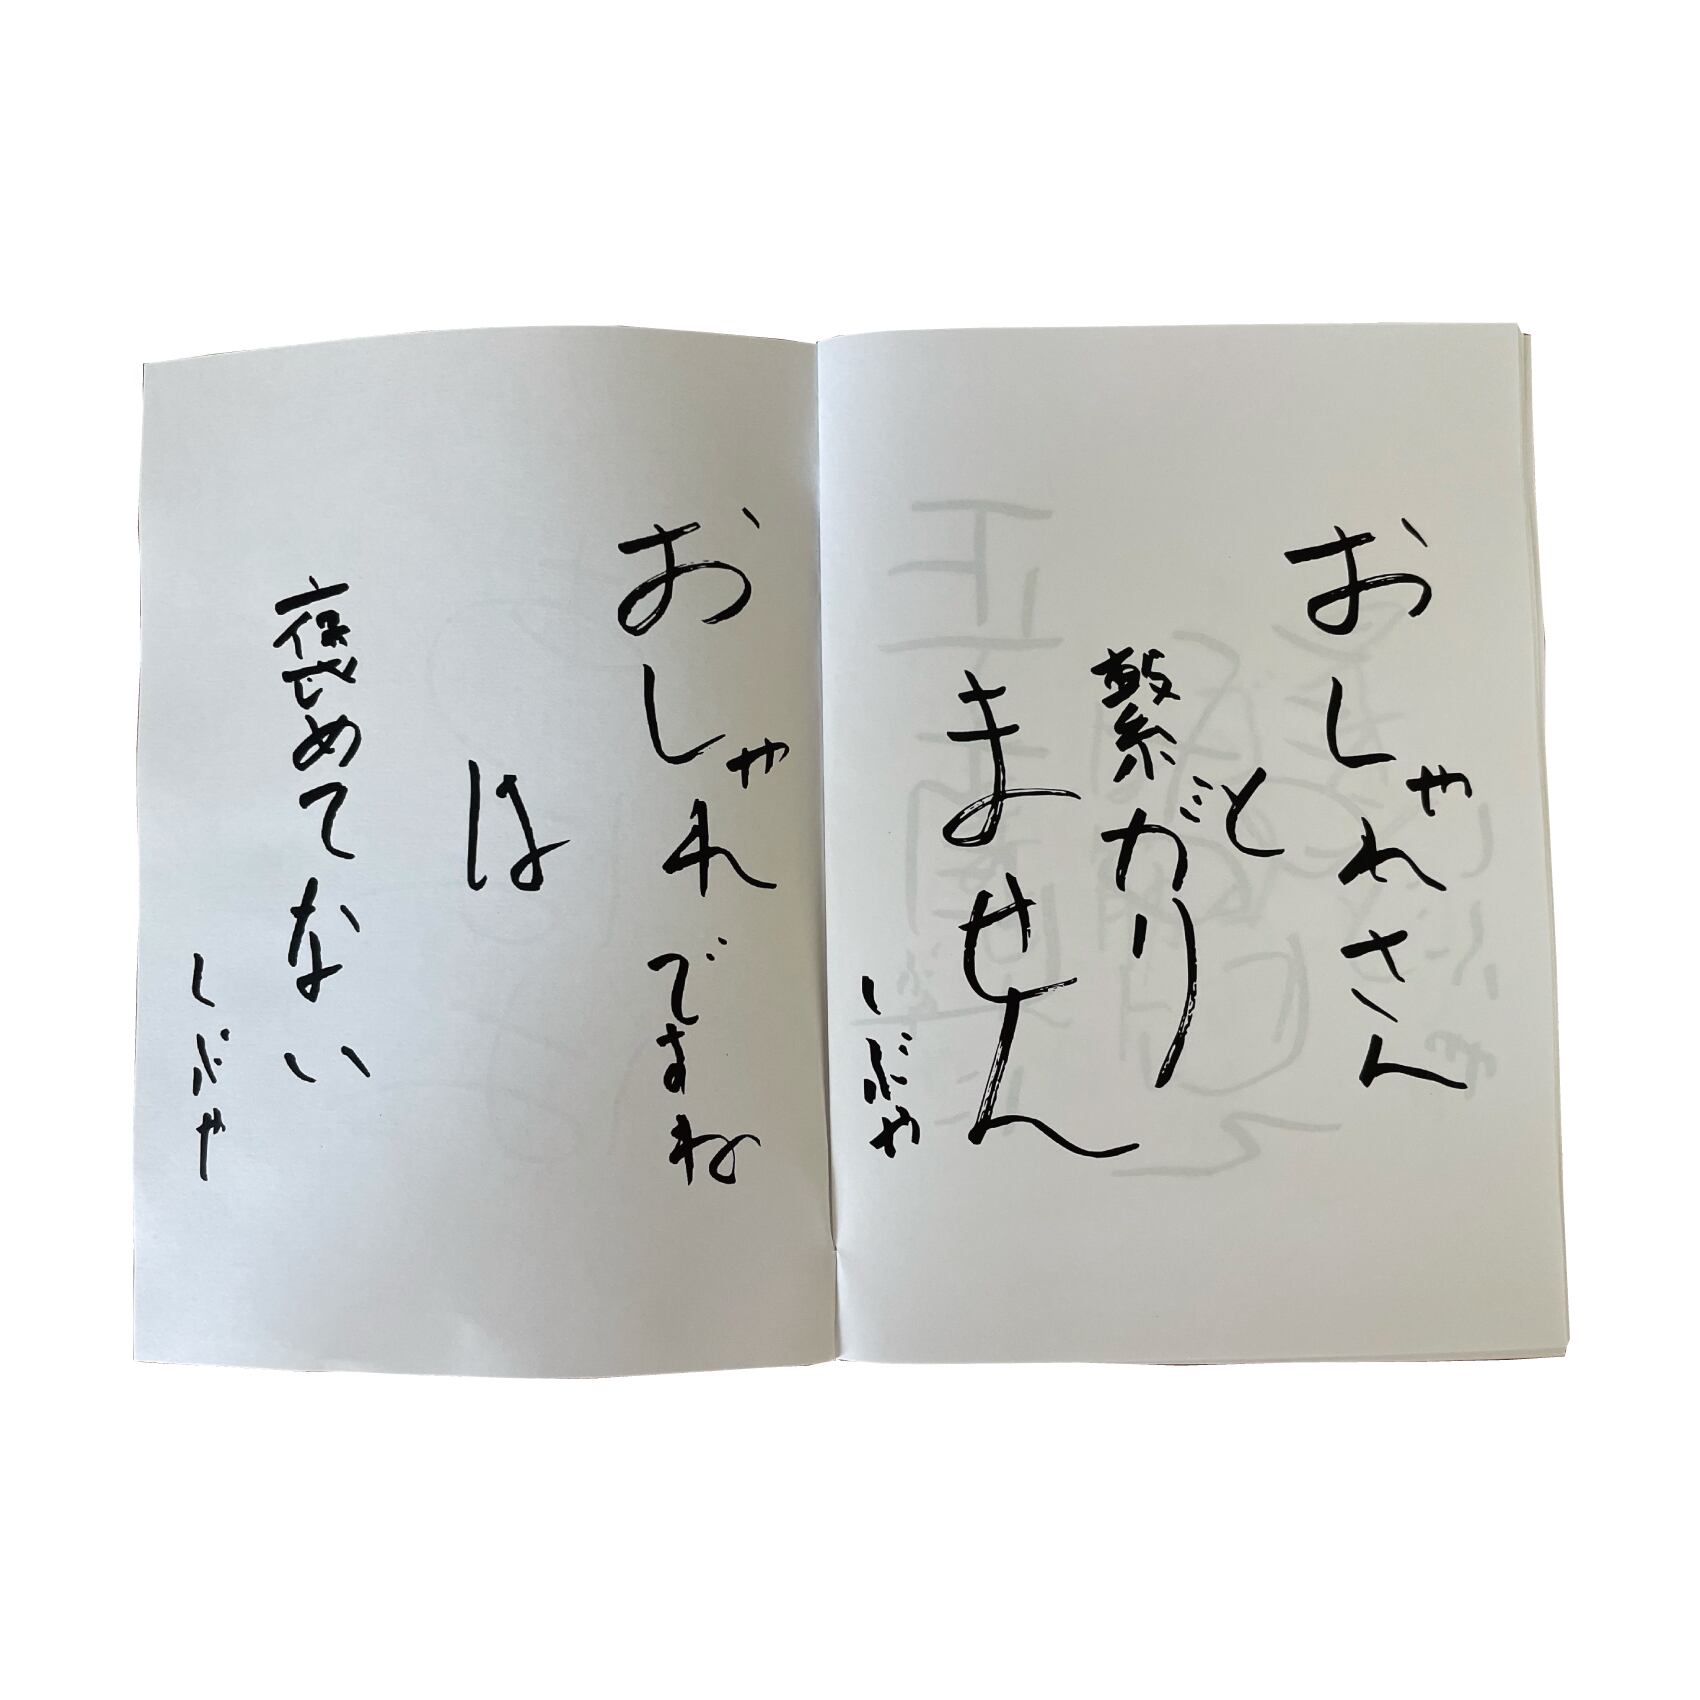 おしゃれさん
と
繋がり
ません
しぶや
おしゃれですね
は
褒めてない
しぶや